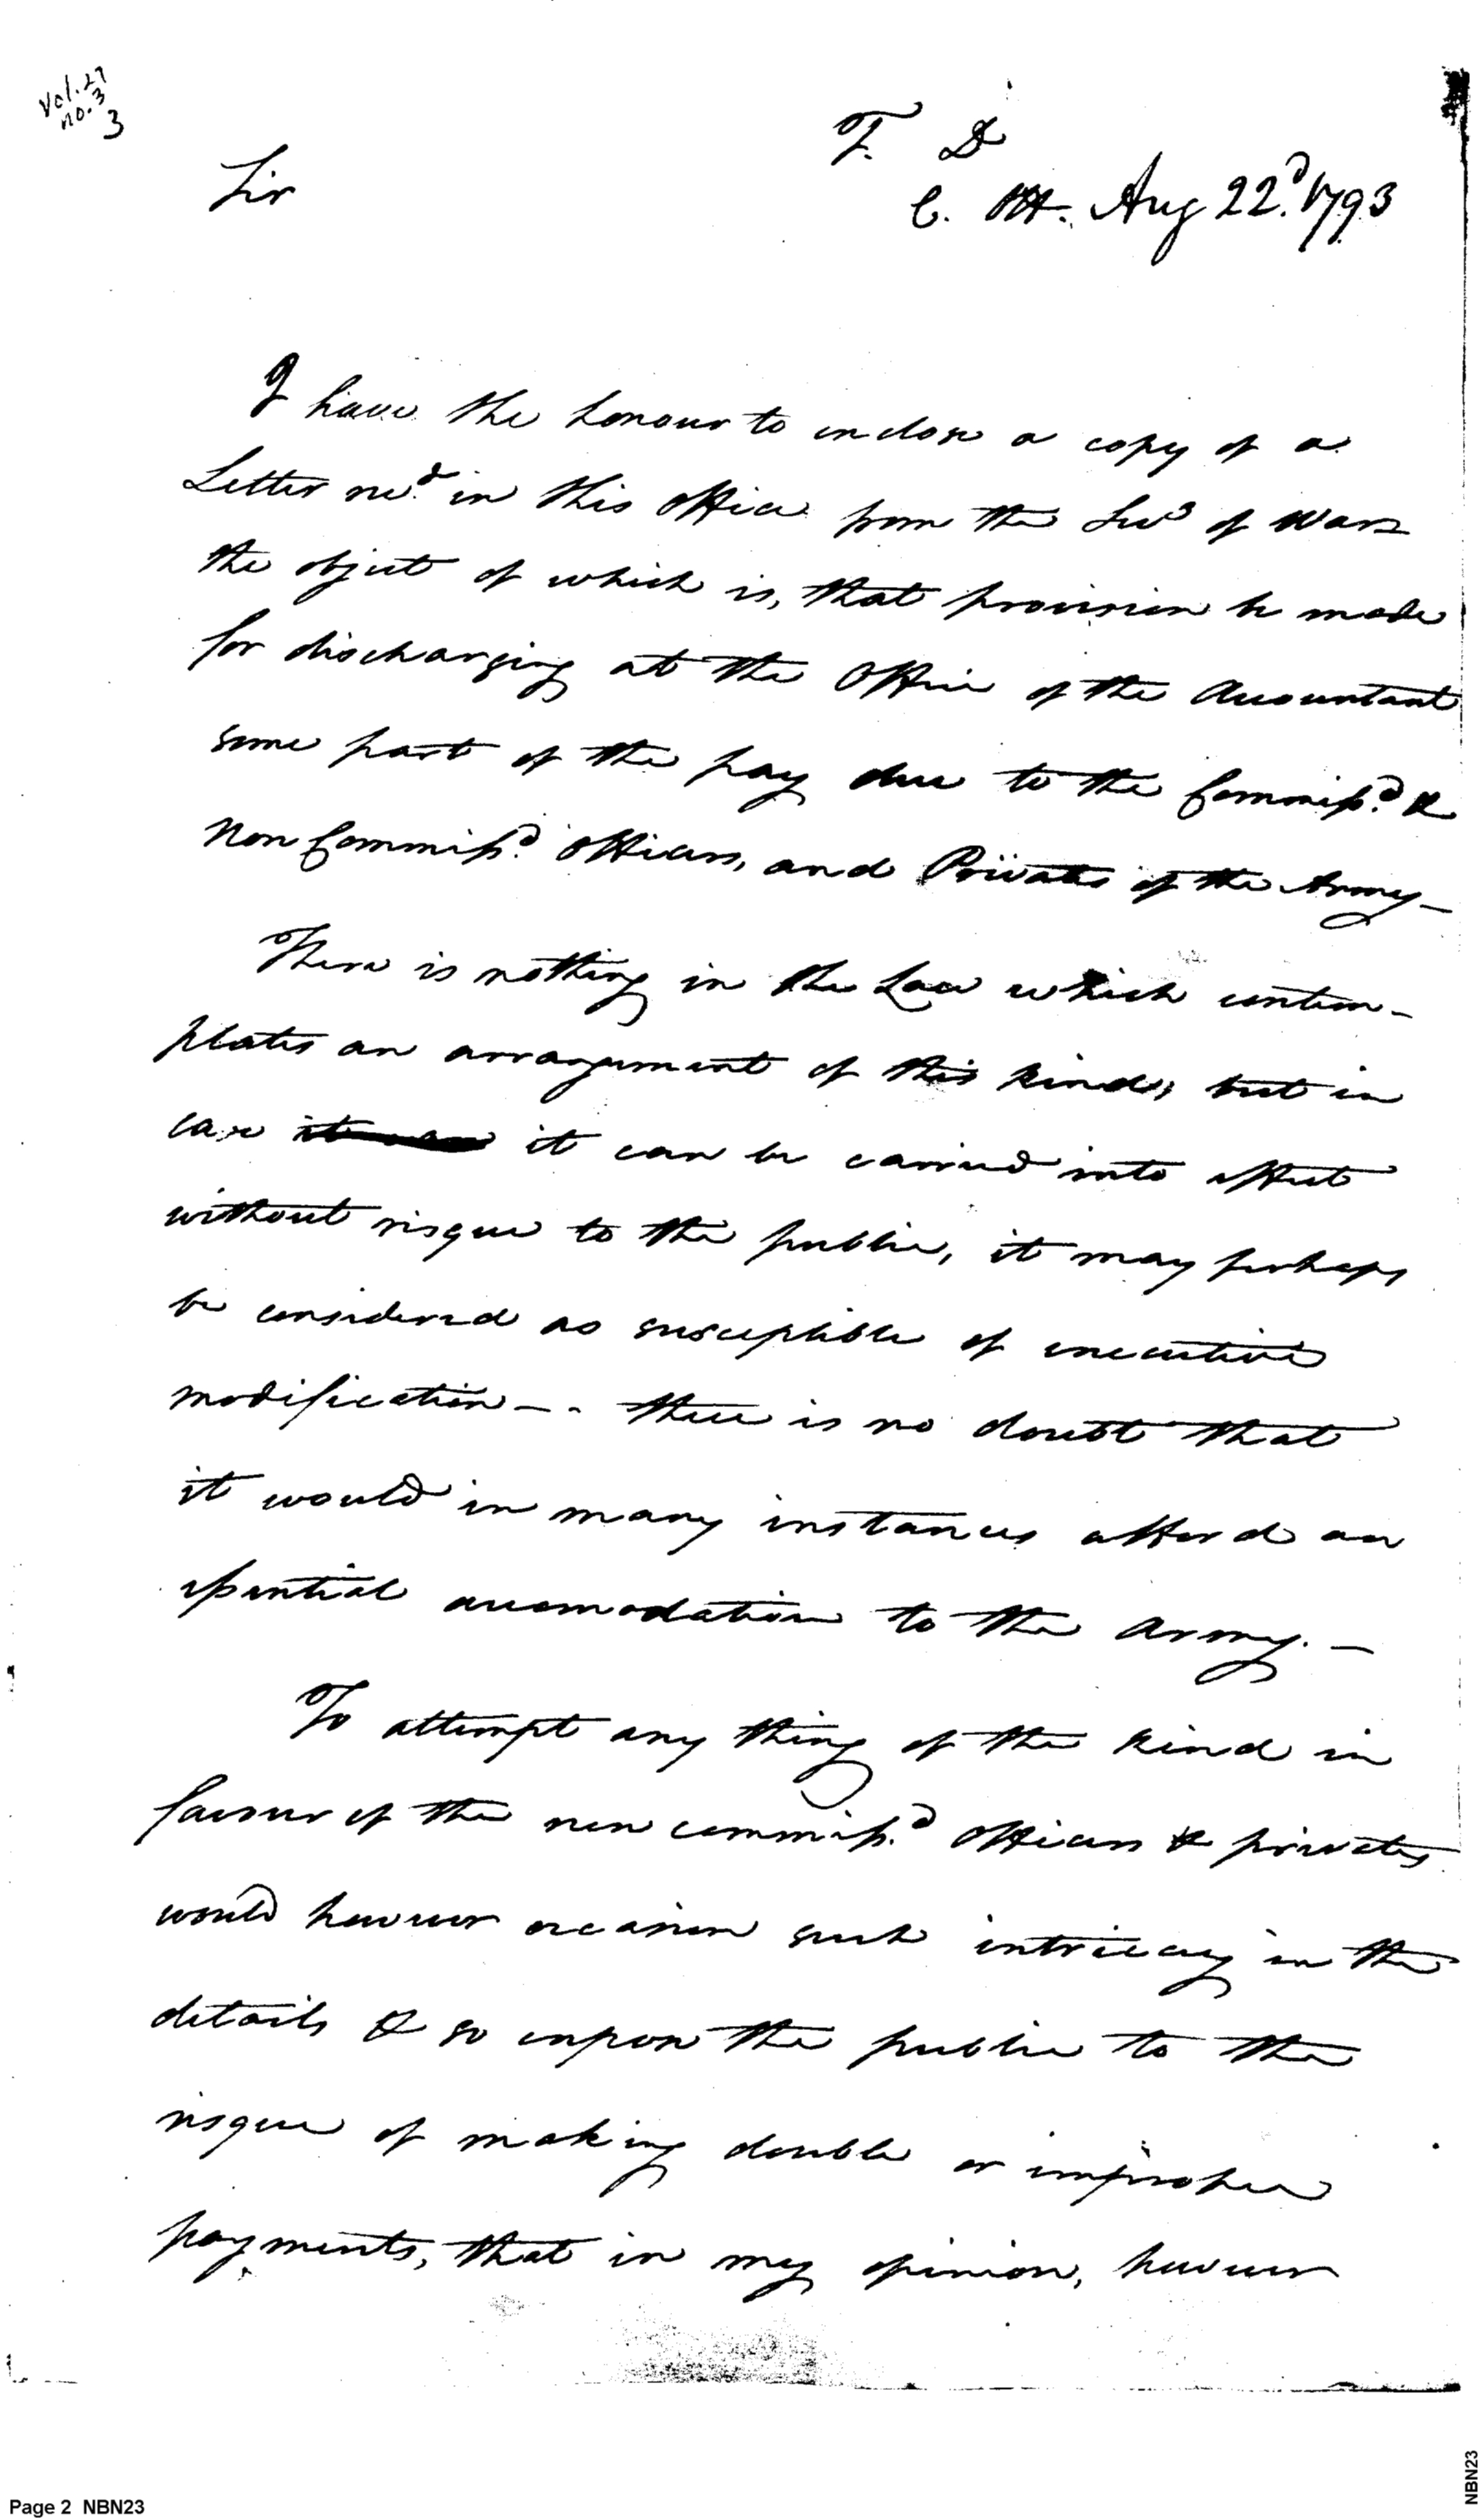 Vol. 27
no. 3
3
T. D
C. Off. Aug 22.d 1793
Sir
I have the honour to inclose a copy of a
Letter recd. in this Office from the Secy of War
the object of which is, that provision be made
for discharging at the Office of the Accountant
some part of the pay due to the Commissd. &
Non Commissd. Officers, and Privates of the Army —
There is nothing in the Law which contem-
plates an arrangement of this kind, but in
case it can be carried into effect
without risque to the public, it may perhaps
be considered as susceptible of executive
modification — . there is no doubt that
it would in many instances afford an
essential accomodation to the Army. —
To attempt any thing of the kind in
favour of the non commissd. Officers & privates
would however occasion such intricacy in the
details & so expose the public to the
risque of making double or improper
payments, that in my opinion, however
Page 2 NBN23
NBN23